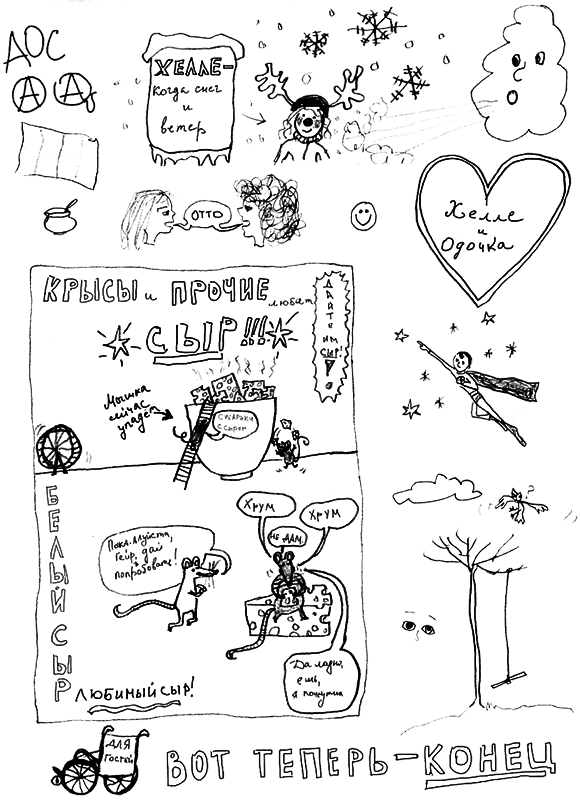 ДОС
А А
ХЕЛЛЕ-
когда снег
и
ветер
ОТТО
Хелле
и
Одочка
КРЫСЫ и ПРОЧИЕ
любят
СЫР!!!
ДАЙТЕ ИМ СЫР!
Мышка
сейчас
упадёт
с сыром
ХРУМ
ХРУМ
НЕ ДАМ
Гейр, дай
попробовать!
Да ладно,
ешь,
я пошутил
БЕЛЫЙ СЫР
ЛЮБИМЫЙ СЫР!
ДЛЯ
ГОСТЕЙ
ВОТ ТЕПЕРЬ-КОНЕЦ